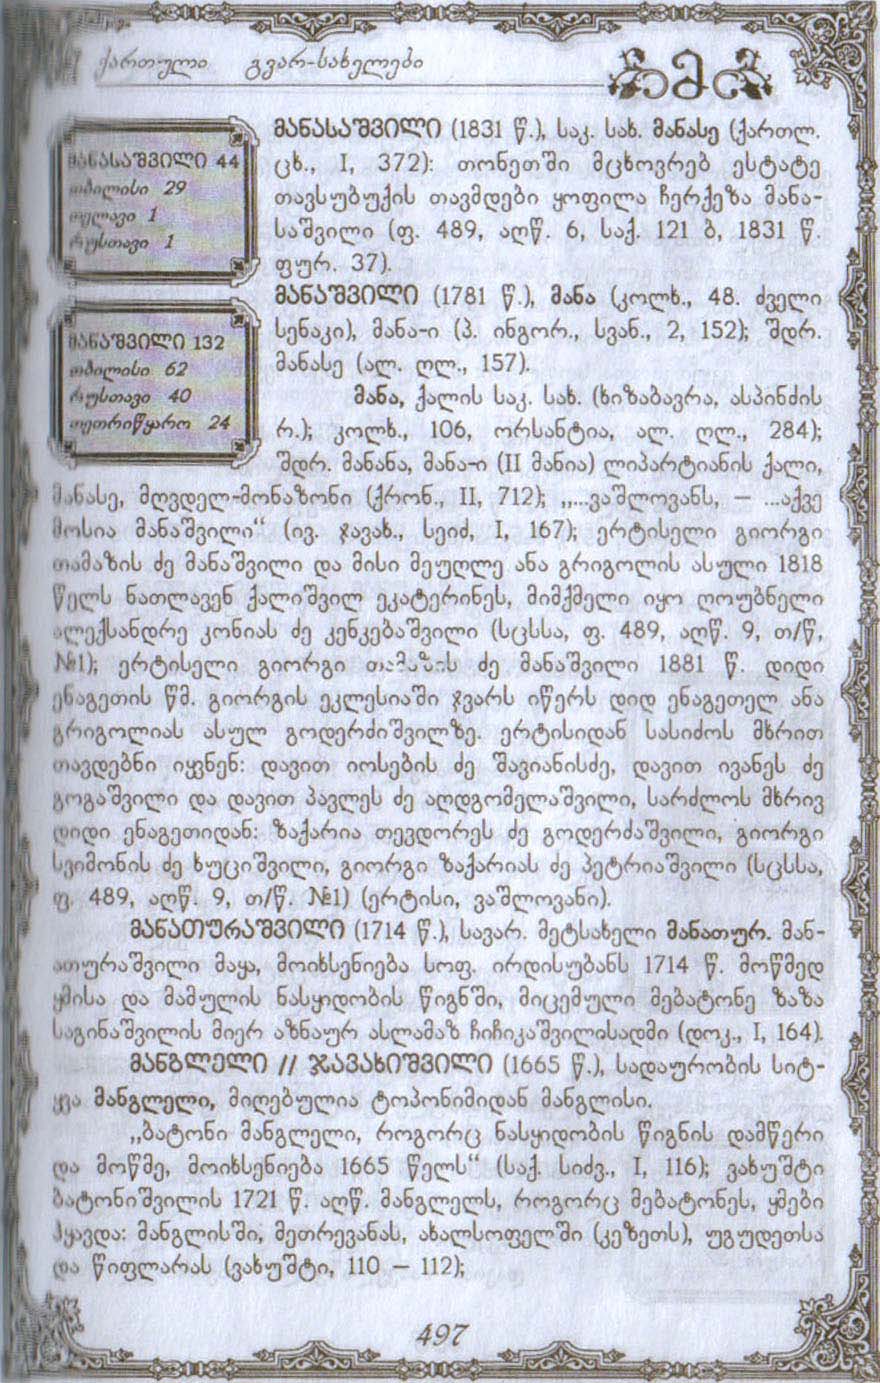 ქართული გვარ-სახელები
მ
მანასაშვილი 44
თბილისი 29
თელავი 1
რუსთავი 1
მანაშვილი 132
თბილისი 62
რუსთავი 40
თეთრიწყარო 24
მანასაშვილი (1831 წ.), საკ. სახ. მანასე (ქართლ.
ცხ., I, 372): თონეთში მცხოვრებ ესტატე
თავსუბუქის თავმდები ყოფილა ჩერქეზა მანა-
საშვილი (ფ. 489, აღწ. 6, საქ. 121 ბ, 1831 წ.
ფურ. 37).
მანაშვილი (1781 წ.), მანა (კოლხ., 48. ძველი
სენაკი), მანა-ი (პ. ინგორ., სვან., 2, 152); შდრ.
მანასე (ალ. ღლ., 157).
მანა, ქალის საკ. სახ. (ხიზაბავრა, ასპინძის
რ.); კოლხ., 106, ორსანტია, ალ. ღლ., 284);
შდრ. მანანა, მანა-ი (II მანია) ლიპარტიანის ქალი,
მანასე, მღვდელ-მონაზონი (ქრონ., II, 712); „...ვაშლოვანს, – ...აქვე
მოსია მანაშვილი“ (ივ. ჯავახ., სეიძ, I, 167); ერტისელი გიორგი
თამაზის ძე მანაშვილი და მისი მეუღლე ანა გრიგოლის ასული 1818
წელს ნათლავენ ქალიშვილ ეკატერინეს, მიმქმელი იყო ღოუბნელი
ალექსანდრე კონიას ძე კენკებაშვილი (სცსსა, ფ. 489, აღწ. 9, თ/წ,
№1); ერტისელი გიორგი თამაზის ძე მანაშვილი 1881 წ. დიდი
ენაგეთის წმ. გიორგის ეკლესიაში ჯვარს იწერს დიდ ენაგეთელ ანა
გრიგოლიას ასულ გოდერძიშვილზე. ერტისიდან სასიძოს მხრით
თავდებნი იყვნენ: დავით იოსების ძე შავიანისძე, დავით ივანეს ძე
გოგაშვილი და დავით პავლეს ძე აღდგომელაშვილი, სარძლოს მხრივ
დიდი ენაგეთიდან: ზაქარია თევდორეს ძე გოდერძაშვილი, გიორგი
სვიმონის ძე ხუციშვილი, გიორგი ზაქარიას ძე პეტრიაშვილი (სცსსა,
ფ. 489, აღწ. 9, თ/წ. №1) (ერტისი, ვაშლოვანი).
მანათურაშვილი (1714 წ.), სავარ. მეტსახელი მანათურ. მან-
ათურაშვილი მაყა, მოიხსენიება სოფ. ირდისუბანს 1714 წ. მოწმედ
ყმისა და მამულის ნასყიდობის წიგნში, მიცემული მებატონე ზაზა
საგინაშვილის მიერ აზნაურ ასლამაზ ჩიჩიკაშვილისადმი (დოკ., I, 164).
მანგლელი // ჯავახიშვილი (1665 წ.), სადაურობის სიტ-
ყვა მანგლელი, მიღებულია ტოპონიმიდან მანგლისი.
„ბატონი მანგლელი, როგორც ნასყიდობის წიგნის დამწერი
და მოწმე, მოიხსენიება 1665 წელს“ (საქ. სიძვ., I, 116); ვახუშტი
ბატონიშვილის 1721 წ. აღწ. მანგლელს, როგორც მებატონეს, ყმები
ჰყავდა: მანგლისში, მეთრევანას, ახალსოფელში (კეზეთს), უგუდეთსა
და წიფლარას (ვახუშტი, 110 – 112);
497